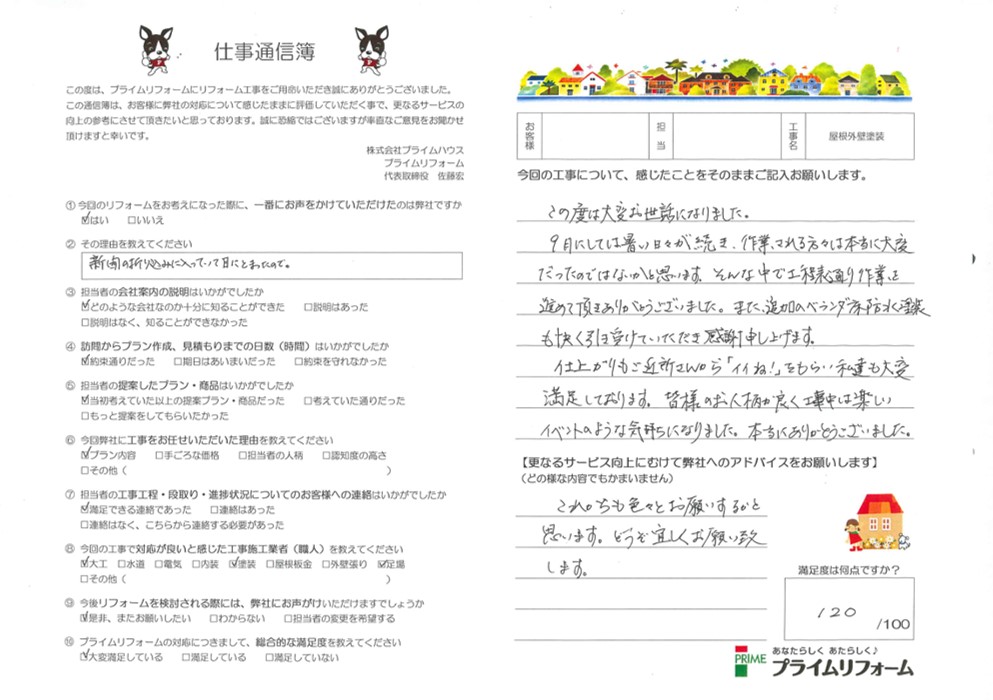 仕事通信簿
この度は、プライムリフォームにリフォーム工事をご用命いただき誠にありがとうございました。
この通信簿は、お客様に弊社の対応について感じたままに評価していただく事で、更なるサービスの
向上の参考にさせて頂きたいと思っております。誠に恐縮ではございますが率直なご意見をお聞かせ
頂けますと幸いです。
株式会社プライムハウス
プライムリフォーム
代表取締役 佐藤宏
① 今回のリフォームをお考えになった際に、一番にお声をかけていただけたのは弊社ですか
☑はい □いいえ
② その理由を教えてください
新聞の折り込みに入っていて目にとまったので。
③ 担当者の会社案内の説明はいかがでしたか
☑どのような会社なのか十分に知ることができた □説明はあった
□説明はなく、知ることができなかった
④ 訪問からプラン作成、見積もりまでの日数（時間）はいかがでしたか
☑約束通りだった □期日はあいまいだった □約束を守れなかった
⑤ 担当者の提案したプラン・商品はいかがでしたか
☑当初考えていた以上の提案プラン・商品だった □考えていた通りだった
□もっと提案をしてもらいたかった
⑥ 今回弊社に工事をお任せいただいた理由を教えてください
☑プラン内容 □手ごろな価格 □担当者の人柄 □認知度の高さ
□その他（ ）
⑦ 担当者の工事工程・段取り・進捗状況についてのお客様への連絡はいかがでしたか
☑満足できる連絡であった □連絡はあった
□連絡はなく、こちらから連絡する必要があった
⑧ 今回の工事で対応が良いと感じた工事施工業者（職人）を教えてください
☑大工 □水道 □電気 □内装 ☑塗装 □屋根板金 □外壁張り ☑足場
□その他（ ）
⑨ 今後リフォームを検討される際には、弊社にお声がけいただけますでしょうか
☑是非、またお願いしたい □わからない □担当者の変更を希望する
⑩ プライムリフォームの対応につきまして、総合的な満足度を教えてください
☑大変満足している □満足している □満足していない
お客様 担当 工事名 屋根外壁塗装
今回の工事について、感じたことをそのままご記入お願いします。
この度は大変お世話になりました。
9月にしては暑い日々が続き、作業される方々は本当に大変
だったのではないかと思います。そんな中で工程通り作業を
進めて頂きありがとうございました。また、追加のベランダ床防水塗装
も快く引き受けていただき感謝申し上げます。
仕上がりもご近所さんから「イイね!」をもらい私達も大変
満足しております。皆様のお人柄が良く工事中は楽しい
イベントのような気持ちになりました。本当にありがとうございました。
【更なるサービス向上にむけて弊社へのアドバイスをお願いします】
（どの様な内容でもかまいません）
これからも色々とお願いするかと
思います。どうぞ宜しくお願い致
します。
満足度は何点ですか？
120
/100
PRIME
あなたらしく あたらしく♪
プライムリフォーム